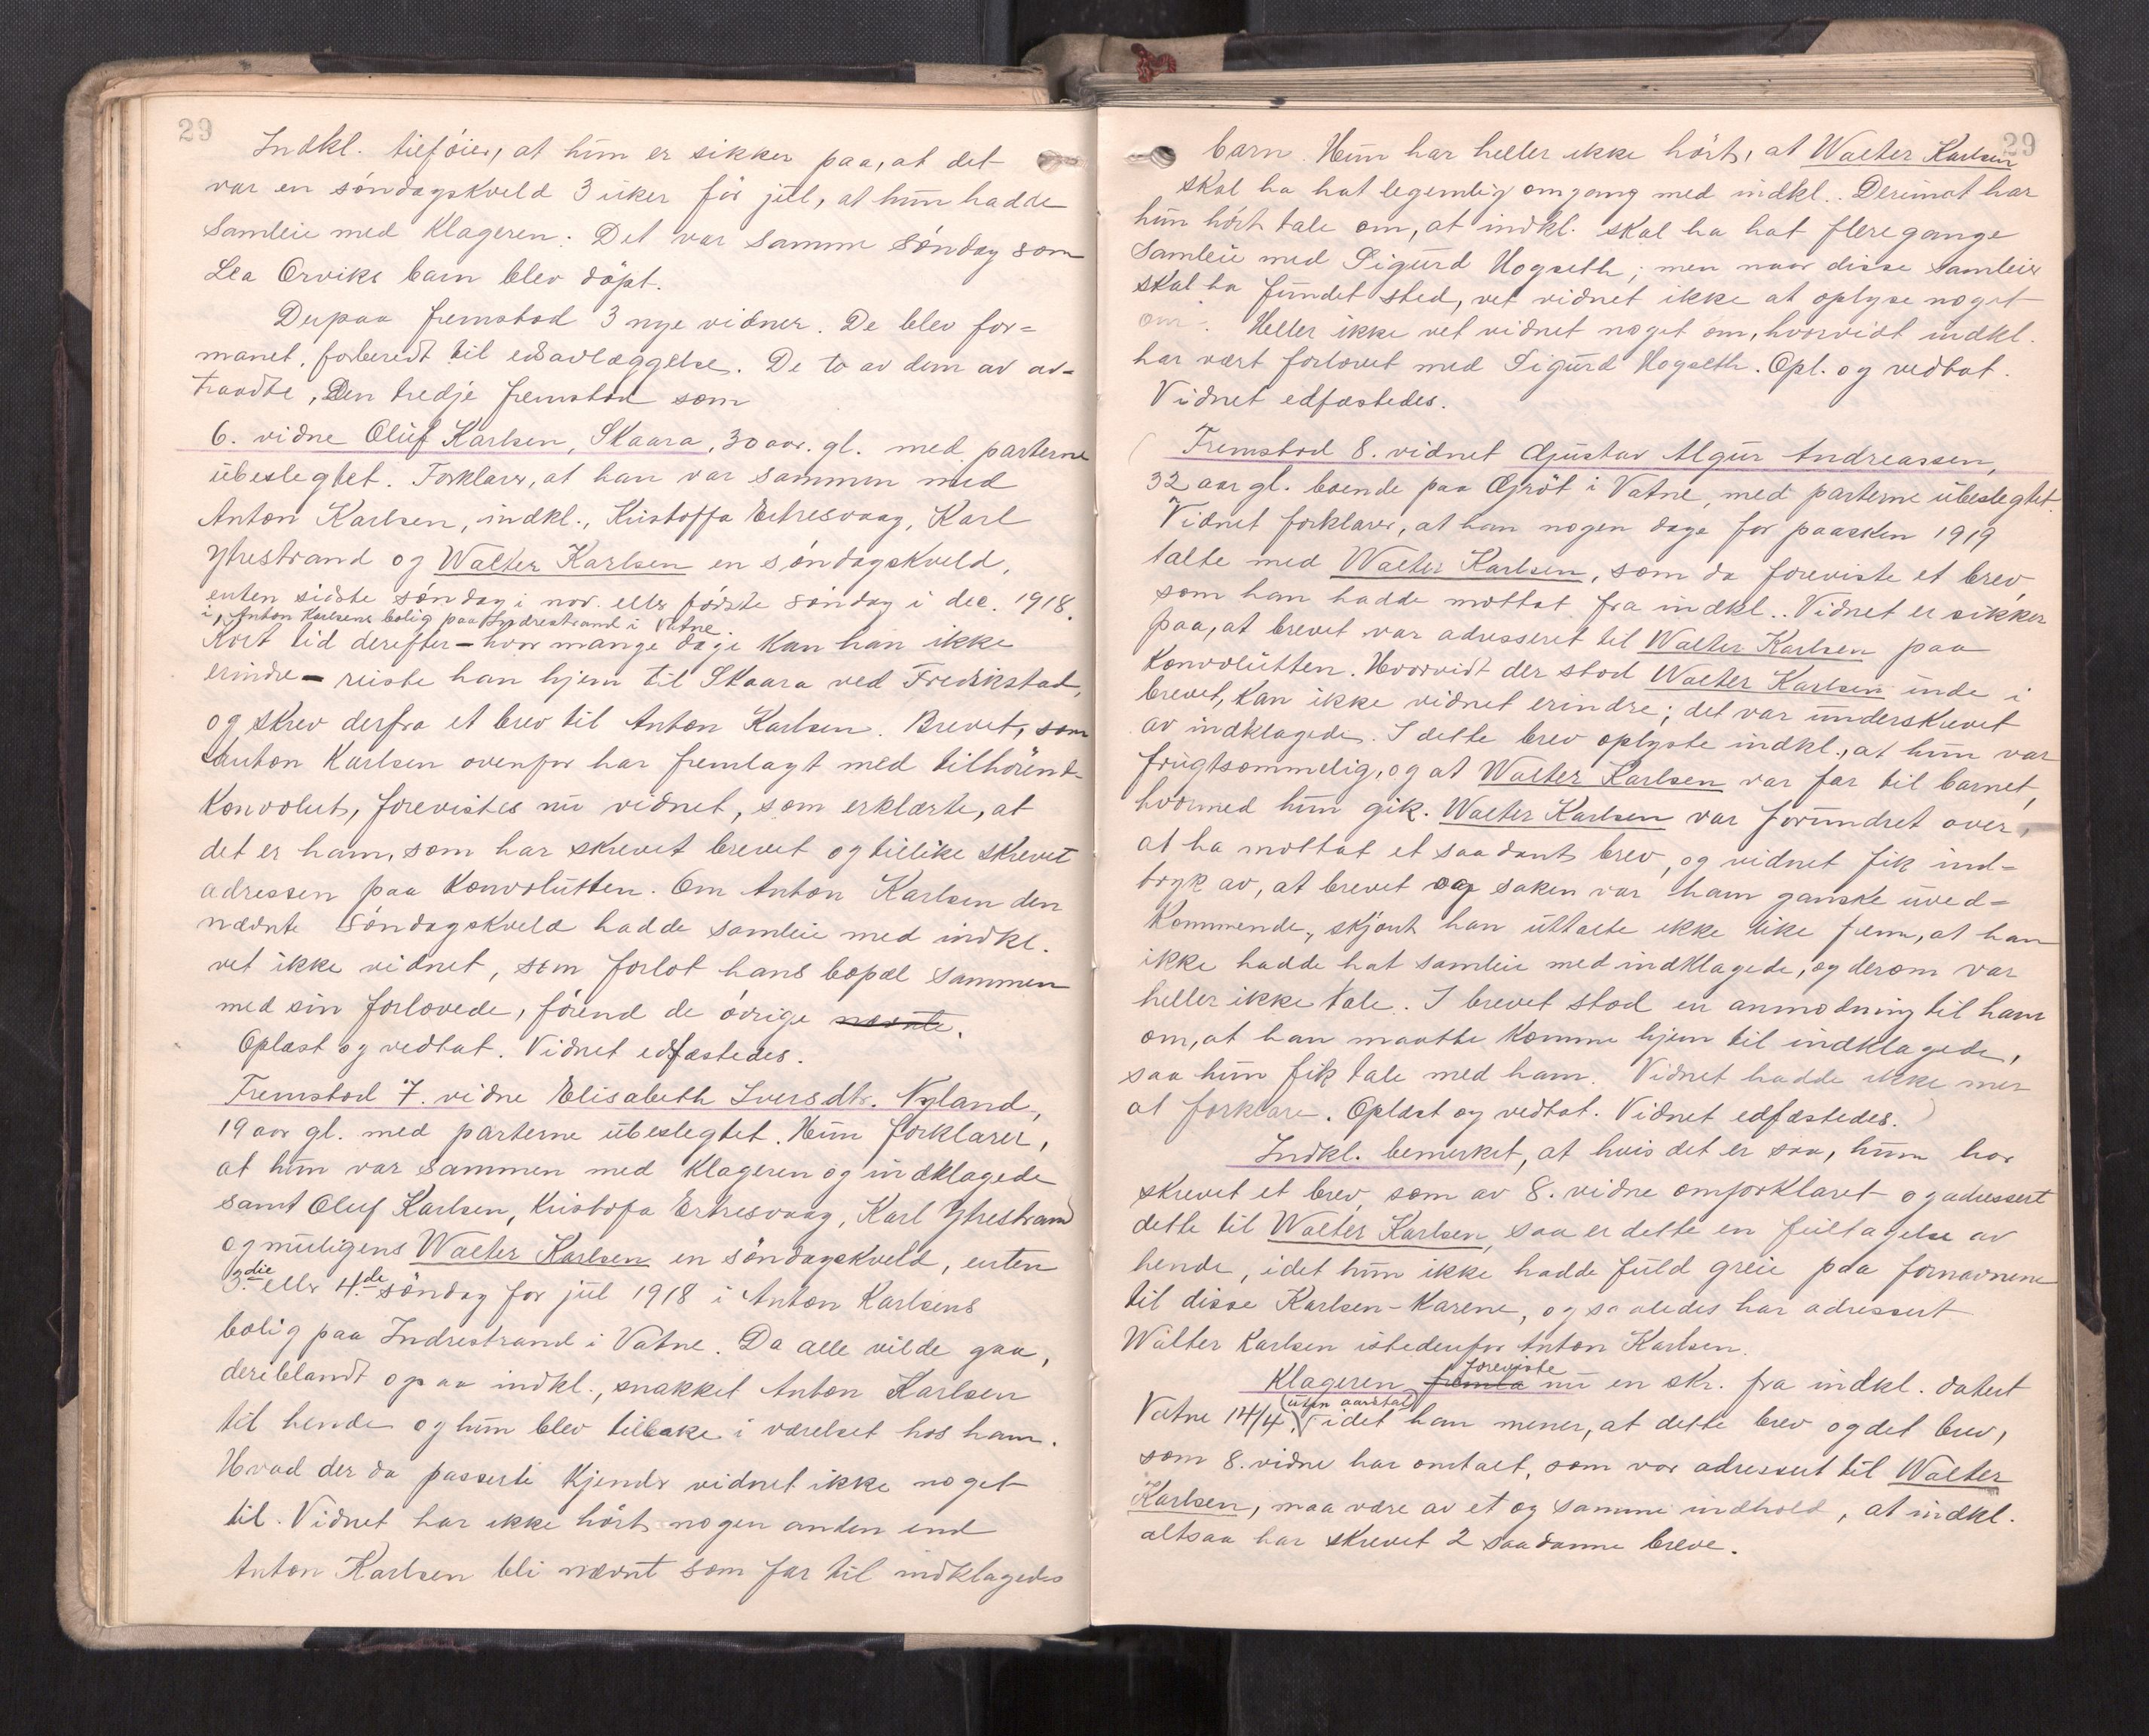 29
Indkl. tilføier, at hun er sikker paa, at det
var en søndagskveld 3 uker før jul, at hun hadde
samleie med klageren. Det var samme søndag som
Lea Orviks barn blev døpt.
Derpaa fremstod 3 nye vidner. De blev for=
manet, forberedt til edsavlæggelse. De to av dem av av-
traadte, Den tredje fremstod som
6. vidne Oluf Karlsen, Skaara, 30 aar. gl. med parterne
ubeslegtet. Forklarer, at han var sammen med
Anton Karlsen, indkl., Kristoffa Ertresvaag, Karl
Ytrestrand og Walter Karlsen en søndagskveld,
enten sidste søndag i nov. eller første søndag i dec. 1918.
i Anton Karlsens bolig paa Indrestrand i Vatne.
Kort tid derefter – hvor mange dage kan han ikke
erindre – reiste han hjem til Skaara ved Fredrikstad,
og skrev derfra et brev til Anton Karlsen. Brevet, som
Anton Karlsen ovenfor har fremlagt med tilhørend-
konvolut, forevistes nu vidnet, som erklærte, at
det er ham, som har skrevet brevet og tillike skrevet
adressen paa konvolutten. Om Anton Karlsen den
nævnte søndagskveld hadde samleie med indkl.
vet ikke vidnet, som forlot hans bopæl sammen
med sin forlovede, førend de øvrige nævnte.
Oplæst og vedtat. Vidnet edfæstedes.
Fremstod 7. vidne Elisabeth Iversdtr. Nyland,
19 aar gl. med parterne ubeslegtet. Hun forklarer,
at hun var sammen med klageren og indklagede
samt Oluf Karlsen, Kristofa Ertresvaag, Karl Ytrestrand
og muligens Walter Karlsen en søndagskveld, enten
3.die eller 4.de søndag før jul 1918 i Anton Karlsens
bolig paa Indrestrand i Vatne. Da alle vilde gaa,
deriblandt ogsaa indkl., snakket Anton Karlsen
til hende og hun blev tilbake i værelset hos ham.
Hvad der da passerte kjender vidnet ikke noget
til. Vidnet har ikke hørt nogen anden end
Anton Karlsen bli nævnt som far til indklagedes
29
barn. Hun har heller ikke hørt, at Walter Karlsen
skal ha hat legemlig omgang med indkl.. Derimot har
hun hørt tale om, at indkl. skal ha hat flere gange
samleie med Sigurd Hogseth; men naar disse samleier
skal ha fundet sted, vet vidnet ikke at oplyse noget
om. Heller ikke vet vidnet noget om, hvorvidt indkl.
har vært forlovet med Sigurd Hogseth. Opl. og vedtat.
Vidnet edfæstedes.
Fremstod 8. vidnet Gustav Algur Andreassen,
32 aar gl. boende paa Grøt i Vatne, med parterne ubeslegtet.
Vidnet forklarer, at han nogen dage før paasken 1919
talte med Walter Karlsen, som da foreviste et brev,
som han hadde mottat fra indkl.. Vidnet er sikker
paa, at brevet var adresseret til Walter Karlsen paa
konvolutten. Hvorvidt der stod Walter Karlsen inde i
brevet, kan ikke vidnet erindre; det var underskrevet
av indklagede. I dette brev oplyste indkl., at hun var
frugtsommelig, og at Walter Karlsen var far til barnet,
hvormed hun gik. Walter Karlsen var forundret over,
at ha mottat et saadant brev, og vidnet fik ind=
tryk av, at brevet og saken var ham ganske uved=
kommende, skjønt han uttalte ikke like frem, at han
ikke hadde hat samleie med indklagede, og derom var
heller ikke tale. I brevet stod en anmodning til ham
om, at han maatte komme hjem til indklagede,
saa hun fik tale med ham. Vidnet hadde ikke mer
at forklare. Oplæst og vedtat. Vidnet edfæstedes.)
Indkl. bemerket, at hvis det er saa, hun har
skrevet et brev, som av 8. vidne omforklaret og adressert
dette til Walter Karlsen, saa er dette en feiltagelse av
hende, idet hun ikke hadde fuld greie paa fornavnene
til disse Karlsen-karene, og saaledes har adressert
Walter Karlsen istedenfor Anton Karlsen.
Klageren fremla foreviste nu en skr. fra indkl. datert
Vatne 14/4 (uten aarstal) idet han mener, at dette brev og det brev,
som 8. vidne har omtalt, som var adressert til Walter
Karlsen, maa være av et og samme indhold, at indkl.
altsaa har skrevet 2 saadanne breve.